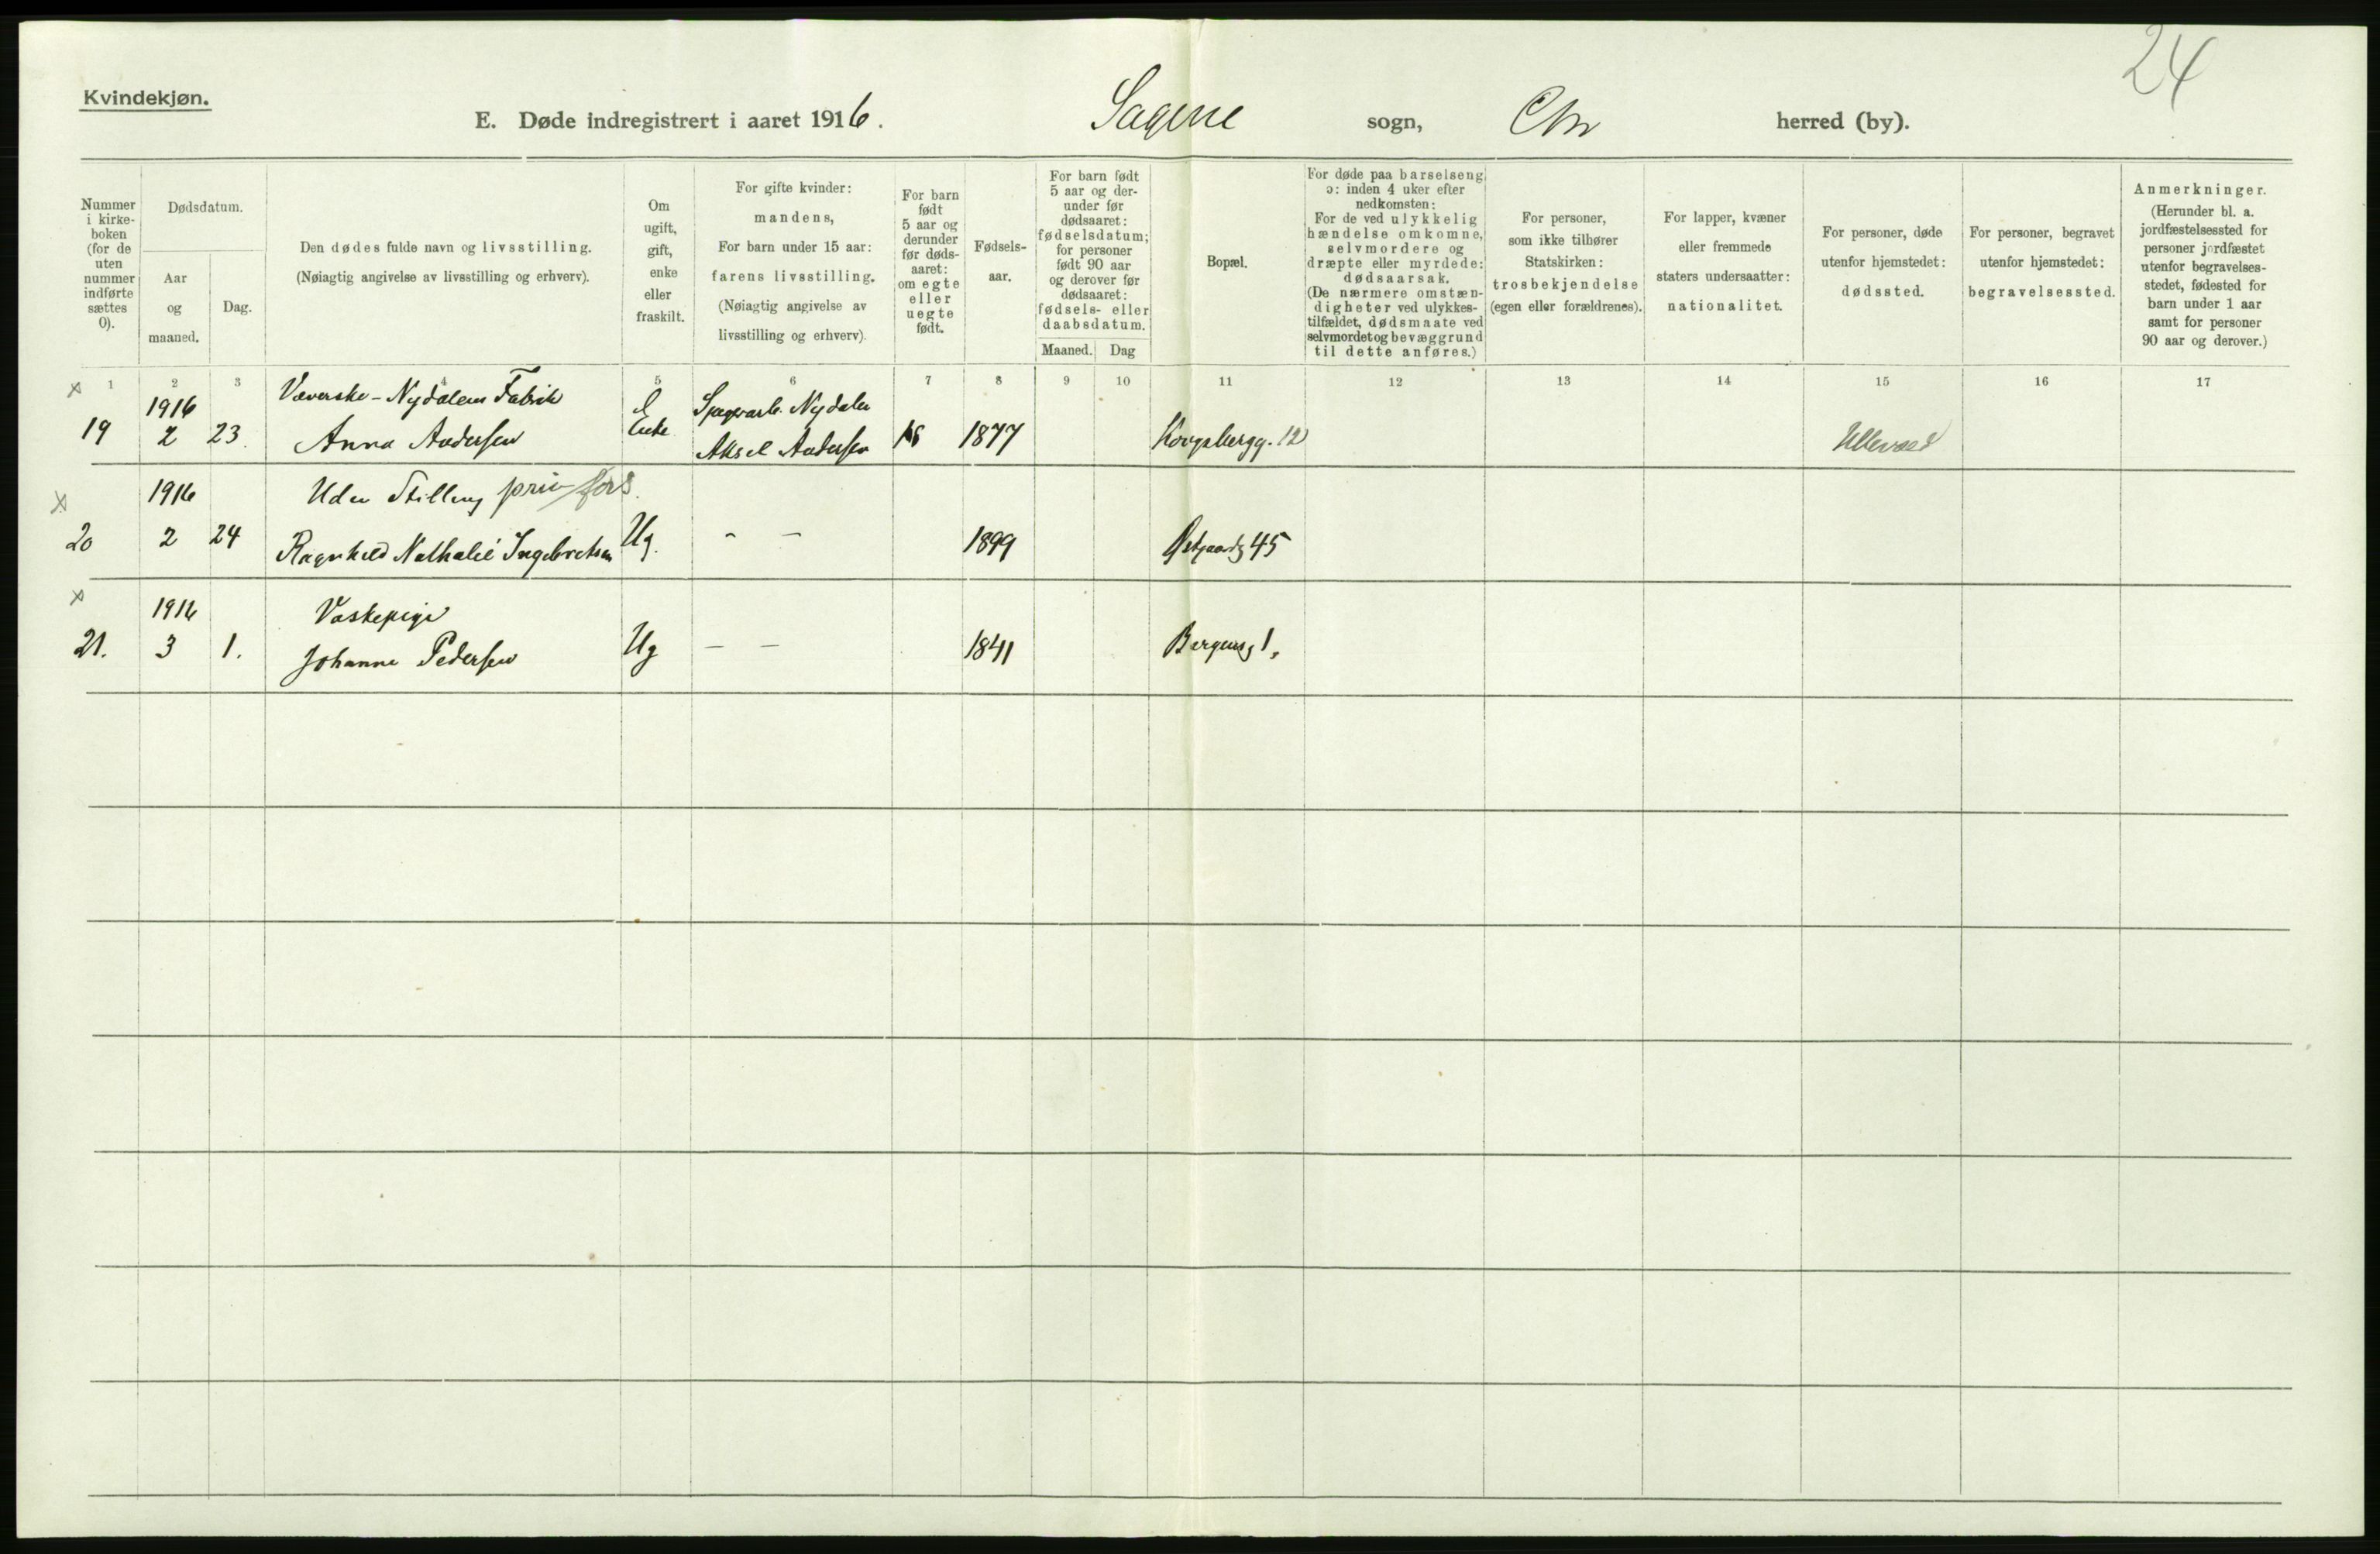 24
Kvindekjøn.
E. Døde indregistrert i aaret 1916. Sagene sogn, Chr herred (by).
Nummer
i kirke-
boken
(for de
uten
nummer
indførte
sættes
0).
Dødsdatum.
Aar
og
maaned.
Dag.
Den dødes fulde navn og livsstilling.
(Nøiagtig angivelse av livsstilling og erhverv).
Om
ugift,
gift,
enke
eller
fraskilt.
For gifte kvinder:
mandens,
For barn under 15 aar:
farens livsstilling.
(Nøiagtig angivelse av
livsstilling og erhverv).
For barn
født
5 aar og
derunder
før døds-
aaret:
om egte
eller
uegte
født.
Fødsels-
aar.
For barn født
5 aar og der-
under før
dødsaaret:
fødselsdatum;
for personer
født 90 aar
og derover før
dødsaaret:
fødsels- eller
daabsdatum.
Maaned. Dag
Bopæl.
For døde paa barselseng
ɔ: inden 4 uker efter
nedkomsten:
For de ved ulykkelig
hændelse omkomne,
selvmordere og
dræpte eller myrdede:
dødsaarsak.
(De nærmere omstæn-
digheter ved ulykkes-
tilfældet, dødsmaate ved
selvmordet og bevæggrund
til dette anføres.)
For personer,
som ikke tilhører
Statskirken:
trosbekjendelse
(egen eller forældrenes).
For lapper, kvæner
eller fremmede
staters undersaatter:
nationalitet.
For personer, døde
utenfor hjemstedet:
dødssted.
For personer, begravet
utenfor hjemstedet:
begravelsessted.
Anmerkninger.
(Herunder bl. a.
jordfæstelsessted for
personer jordfæstet
utenfor begravelses-
stedet, fødested for
barn under 1 aar
samt for personer
90 aar og derover.)
1 2 3 4 5 6 7 8 9 10 11 12 13 14 15 16 17
x 1916 Væverske - Nydalens Fabrik Nydalen
19 2 23. Anna Andersen Enke Aksel Andersen 1877 Kongsbergg. 12 Ullevaal
x 1916 Uden Stilling priv fors.
20 2 24 Ragnhild Nathalie Ingebretsen Ug. - - 1899 Østgaardsg 45
x 1916 Vaskepige
21. 3 1. Johanne Pedersen Ug - - 1841 Bergensg 1,